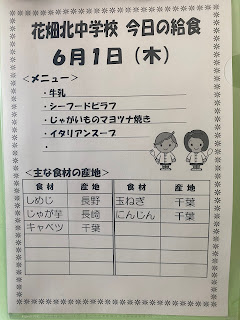 花畑北中学校 今日の給食
6月1日（木）
＜メニュー＞
・牛乳
・シーフードピラフ
・じゃがいものマヨツナ焼き
・イタリアンスープ
・
＜主な食材の産地＞
食材 産地 食材 産地
しめじ 長野 玉ねぎ 千葉
じゃが芋 長崎 にんじん 千葉
キャベツ 千葉